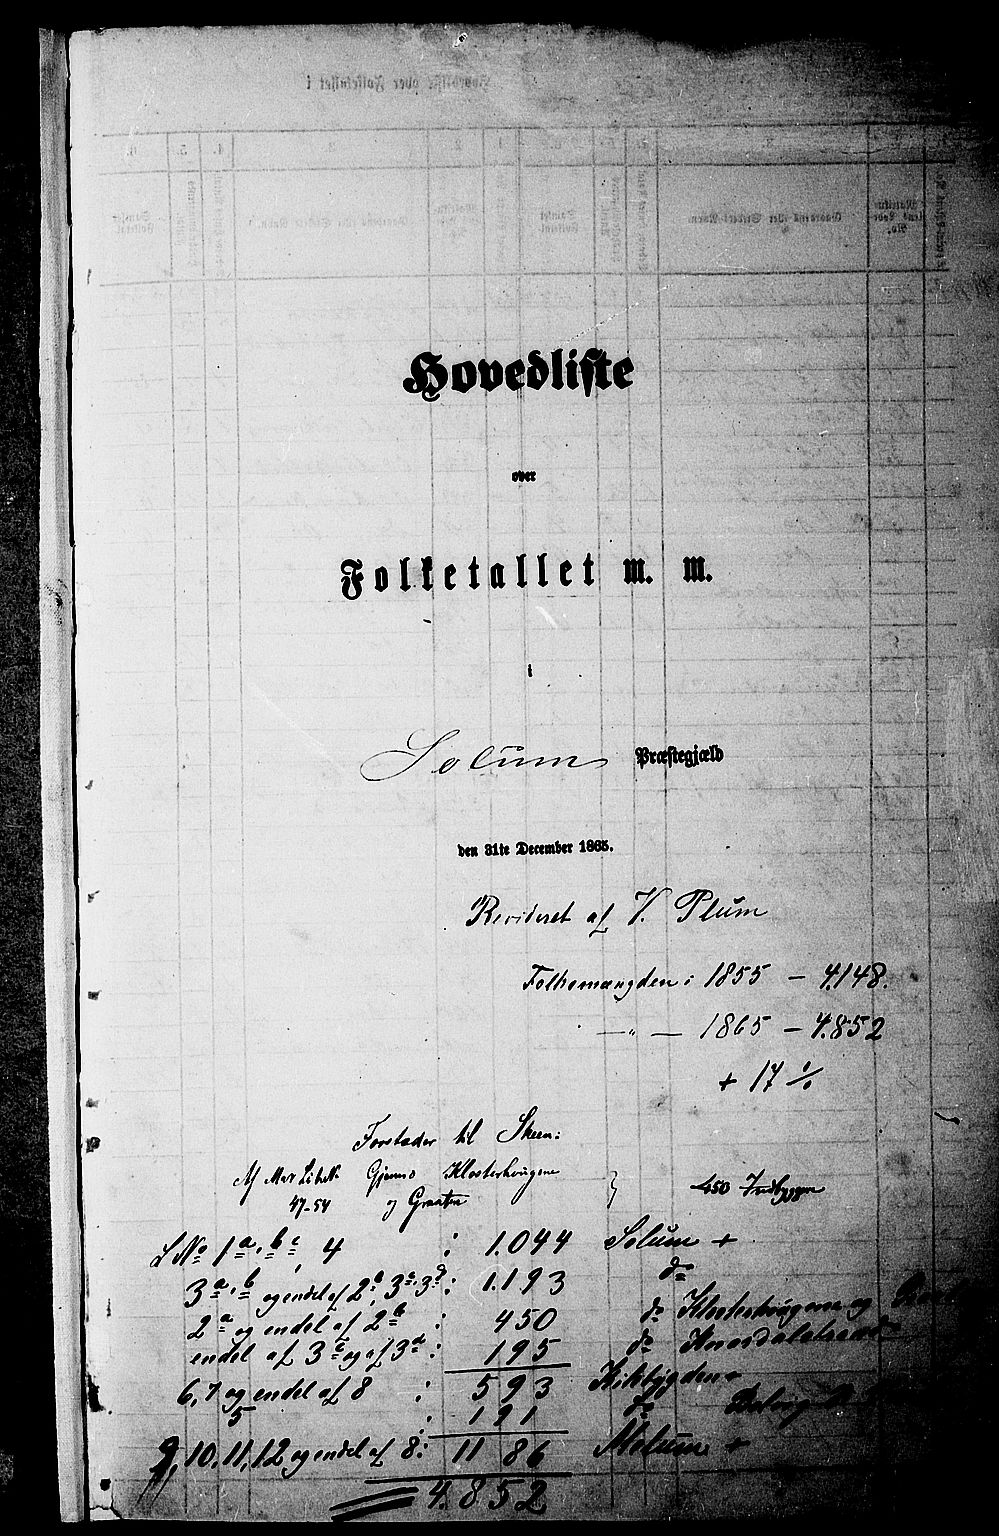 Hovedliste
over
Folketallet m. m.
i
Solum Præstegjæld
den 31te December 1865.
Revideret af V. Plum
Folkemængden i 1855 – 4.148.
—„— 1865 – 4.852
+ 17 %
Forstæder til Skeen:
Af Matr Gjemsø Klosterhougene } 450 Indbyggere
47-54 og Graaten
L No 1a, b, c, 4 : 1.044 Solum +
3a, b og endel af 2b, 3c, 3d : 1.193 do
2a og endel af 2b : 450 do Klosterhougene og
endel af 3c og af 3d : 195 do Knardalstrand
6, 7 og endel af 8 : 593 Kirkbygden +
5 : 191 do
9, 10, 11, 12 og endel af 8 : 1186 Melum +
4.852